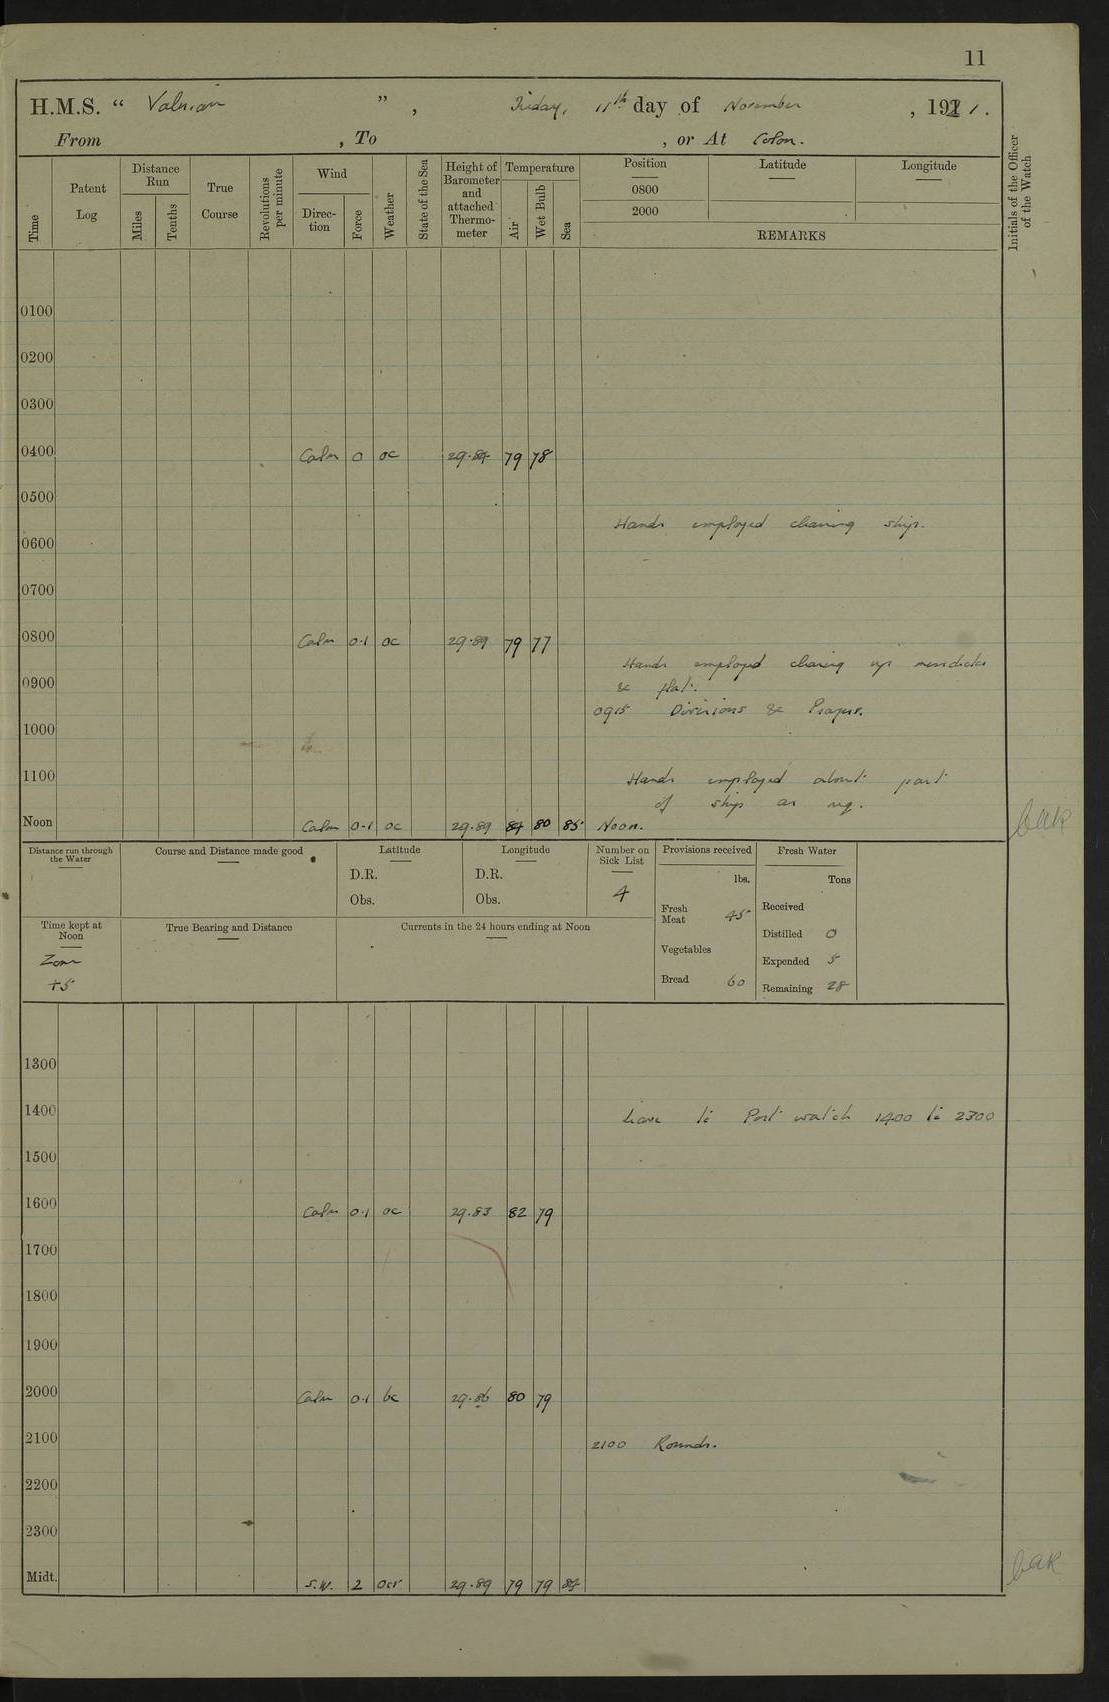 11
H.M.S. “ Valerian ” , Friday, 11th day of November , 1921.
From , To , or At Colon.
Time
Patent Log
Distance Run
Miles
Tenths
True Course
Revolutions per minute
Wind
Direction
Force
Weather
State of the Sea
Height of Barometer and attached Thermometer
Temperature
Air
Wet Bulb
Sea
Position
0800
2000
Latitude
Longitude
REMARKS
Initials of the Officer of the Watch
0100
0200
0300
0400 Calm 0 oc 29.84 79 78
0500
Hands employed cleaning ship.
0600
0700
0800 Calm 0.1 oc 29.89 79 77
Hands employed cleaning up messdecks
0900 & flat.
0915 Divisions & Prayers.
1000
1100 Hands employed about part
of ship as req.
Noon Calm 0-1 oc 29.89 84 80 85 Noon.
Distance run through the Water
Course and Distance made good
Latitude
D.R.
Obs.
Longitude
D.R.
Obs.
Number on Sick List
4
Provisions received
lbs.
Fresh Meat 45
Vegetables
Bread 60
Fresh Water
Tons
Received
Distilled 0
Expended 5
Remaining 28
Time kept at Noon
Zone
+5
True Bearing and Distance
Currents in the 24 hours ending at Noon
1300
1400 Leave to Port watch 1400 to 2300
1500
1600 Calm 0.1 oc 29.83 82 79
1700
1800
1900
2000 Calm 0.1 bc 29.86 80 79
2100 2100 Rounds.
2200
2300
Midt. S.W. 2 ocr 29.89 79 79 84